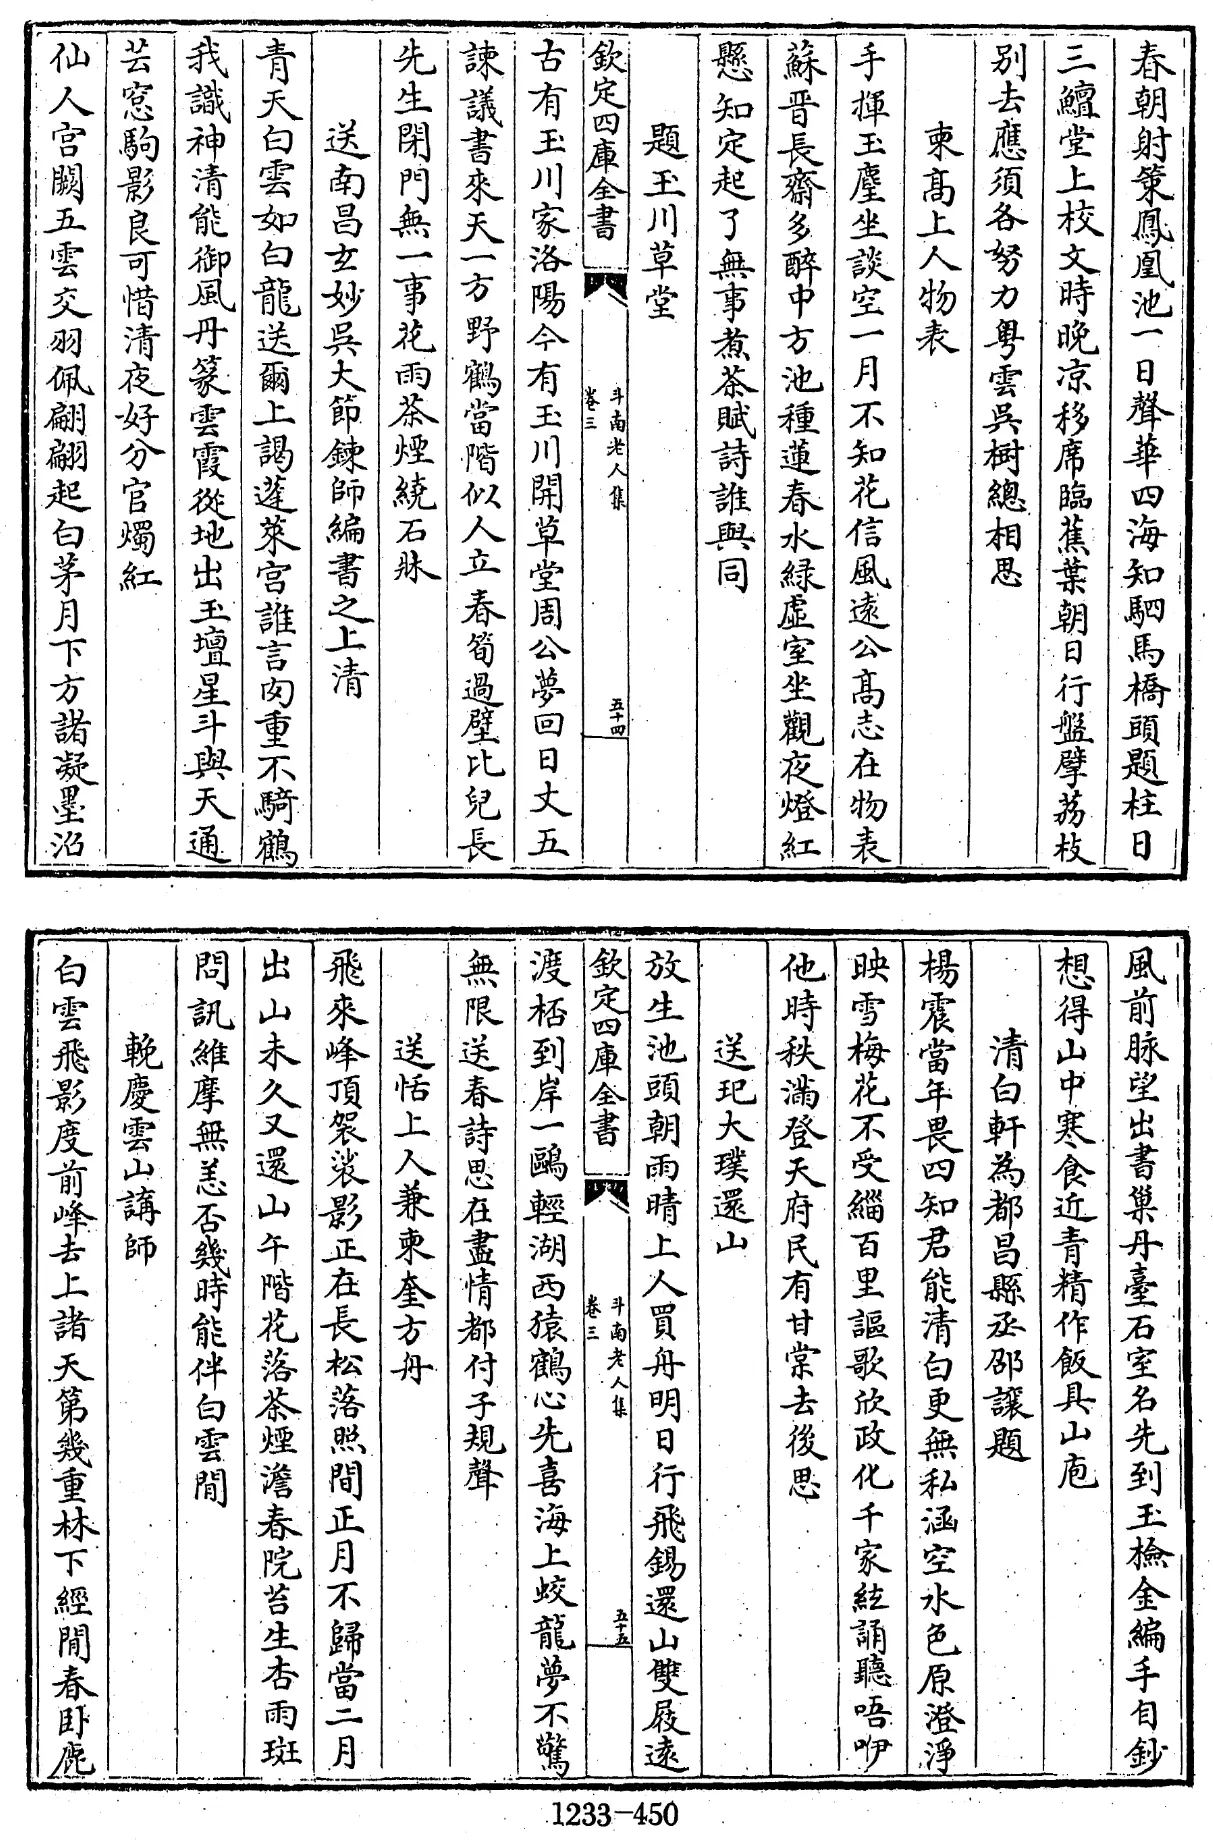 春朝射策鳳凰池一日聲華四海知駟馬橋頭題柱日
三鱣堂上校文時晚凉移席臨蕉葉朝日行盤擘荔枝
别去應須各努力粤雲呉樹總相思
柬髙上人物表
手揮玉麈坐談空一月不知花信風遠公髙志在物表
蘇晋長齋多醉中方池種蓮春水緑虚室坐觀夜燈紅
懸知定起了無事煮茶賦詩誰與同
題玉川草堂
欽定四庫全書
斗南老人集
卷三
五十四
古有玉川家洛陽今有玉川開草堂周公夢回日丈五
諫議書來天一方野鶴當階似人立春筍過壁比兒長
先生閉門無一事花雨茶煙繞石牀
送南昌玄妙呉大節鍊師編書之上清
青天白雲如白龍送爾上謁蓬萊宫誰言肉重不騎鶴
我識神清能御風丹篆雲霞從地出玉壇星斗與天通
芸窓駒影良可惜清夜好分官燭紅
仙人宫闕五雲交羽佩翩翩起白茅月下方諸凝墨沼
風前脉望出書巢丹臺石室名先到玉檢金編手自鈔
想得山中寒食近青精作飯具山庖
清白軒為都昌縣丞邵讓題
楊震當年畏四知君能清白更無私涵空水色原澄淨
映雪梅花不受緇百里謳歌欣政化千家絃誦聽唔咿
他時秩滿登天府民有甘棠去後思
送玘大璞還山
放生池頭朝雨晴上人買舟明日行飛錫還山雙屐遠
欽定四庫全書
斗南老人集
卷三
五十五
渡桮到岸一鷗輕湖西猿鶴心先喜海上蛟龍夢不驚
無限送春詩思在盡情都付子規聲
送恬上人兼柬奎方舟
飛來峰頂袈裟影正在長松落照間正月不歸當二月
出山未久又還山午階花落茶煙澹春院苔生杏雨斑
問訊維摩無恙否幾時能伴白雲閒
輓慶雲山講師
白雲飛影度前峰去上諸天第幾重林下經閒春卧鹿
1233-450